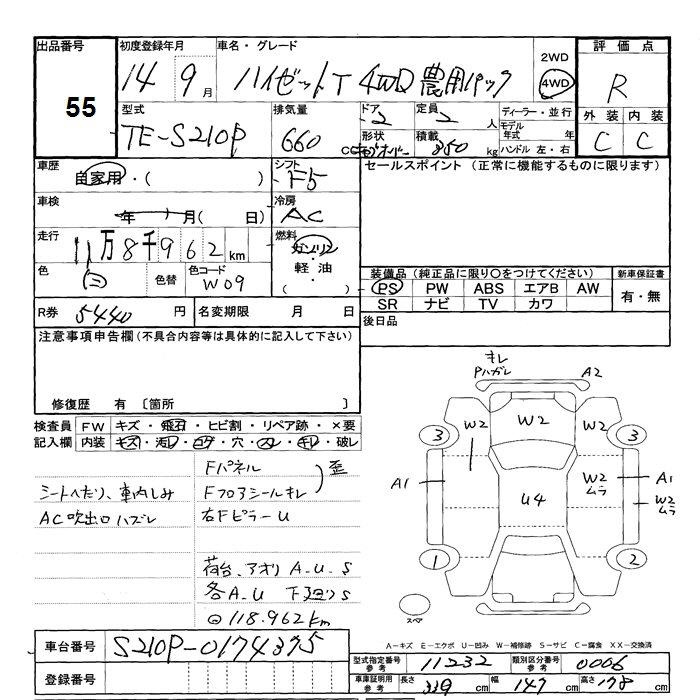 出品番号 55
初度登録年月 14 9月
車名・グレード ハイゼットT 4WD 農用パック
2WD
4WD
評価点 R
外装 内装
C C
型式 TE-S210P
排気量 660
ドア 2
定員 2人
形状
積載 350 kg
ディーラー・並行
モデル年式 年
ハンドル 左・右
車歴 自家用・( )
シフト F5
セールスポイント (正常に機能するものに限ります)
車検 年 月(日)
冷房 AC
走行 11万8千962km
燃料 ガソリン・軽油・( )
色 白 色替
色コード W09
装備品 (純正品に限り○をつけてください)
PS PW ABS エアB AW
SR ナビ TV カワ
新車保証書
有・無
R券 5440円
名変期限 月 日
後日品
注意事項申告欄(不具合内容等は具体的に記入して下さい)
修復歴 有 〔箇所 〕
検査員記入欄
FW キズ・飛石・ヒビ割・リペア跡・×要
内装 キズ・汚レ・コゲ・穴・スレ・キレ・破レ
シートへたり、車内しみ
AC吹出口ハズレ
Fパネル
Fフロアシールキレ
歪
右FピラーU
荷台、アオリ A_U_S
各A_U 下廻りS
◎118.962km
キレ
Pハガレ
A2
3 W2 W2 W2 3
A1 U4 W2ムラ A1
W2ムラ
1 2
スペア
A-キズ E-エクボ U-凹み W-補修跡 S-サビ C-腐食 XX-交換済
車台番号 S210P-0174375
登録番号
型式指定番号 参考 11232
類別区分番号 参考 0006
車庫証明用 参考 長さ 339cm 幅 147cm 高さ 178cm